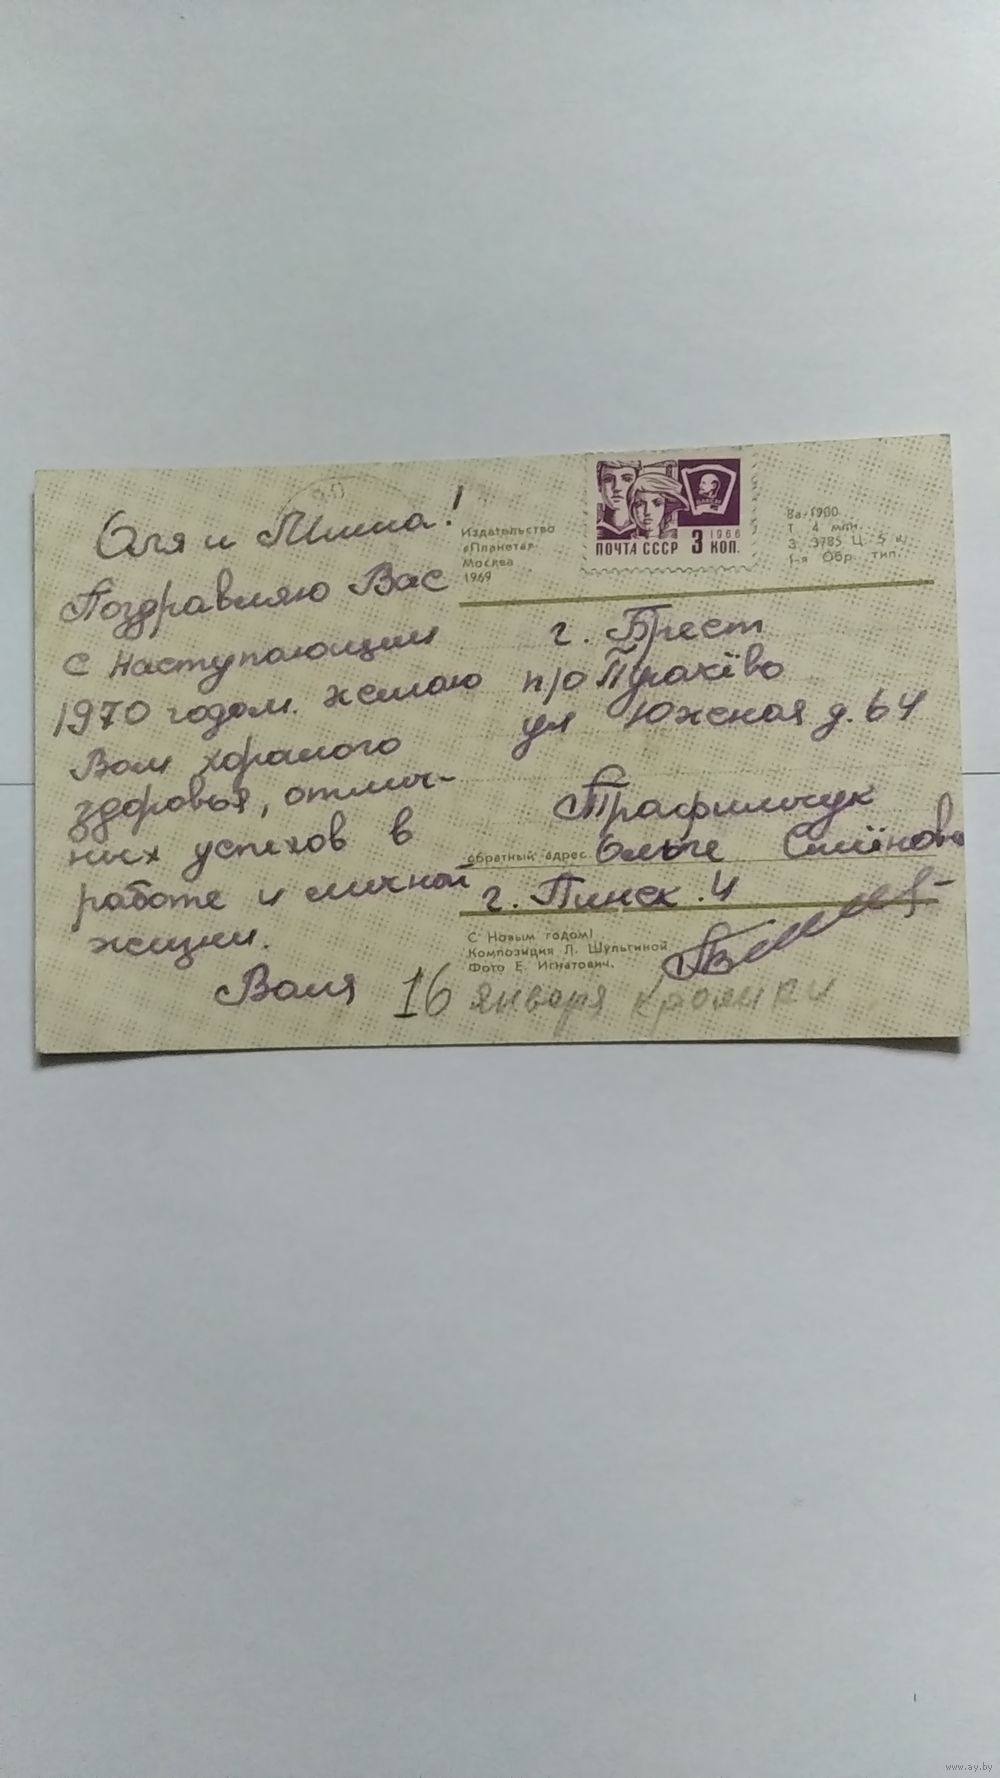 Оля и Миша!
Поздравляю Вас
с Наступающим
1970 годом. желаю
Вам хорошего
здоровья, отлич-
ных успехов в
работе и личной
жизни.
Валя
Издательство
«Планета»
Москва
1969
ПОЧТА СССР 3 КОП.
1966
8а-1900
Т. 4 млн.
З. 3785 Ц. 5 к.
1-я Обр. тип.
г. Брест
п/о Пугачёво
ул Южная д. 64
Трафимчук
Ольге Семёновне
обратный адрес
г. Пинск. 4
С Новым годом!
Композиция Л. Шульгиной
Фото Е. Игнатович.
16 января
www.ay.by